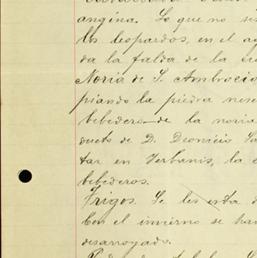 angina. Lo que no si
los leopardos, en el ag
da la falda de la
Noria de S. Ambrocio
piando la piedra
bebedero de la noria
ducto de D. Dionicio
tar en Verbanis, la
bebideros.
Trigos. Se les esta d
Con el invierno se han
desarroyado.